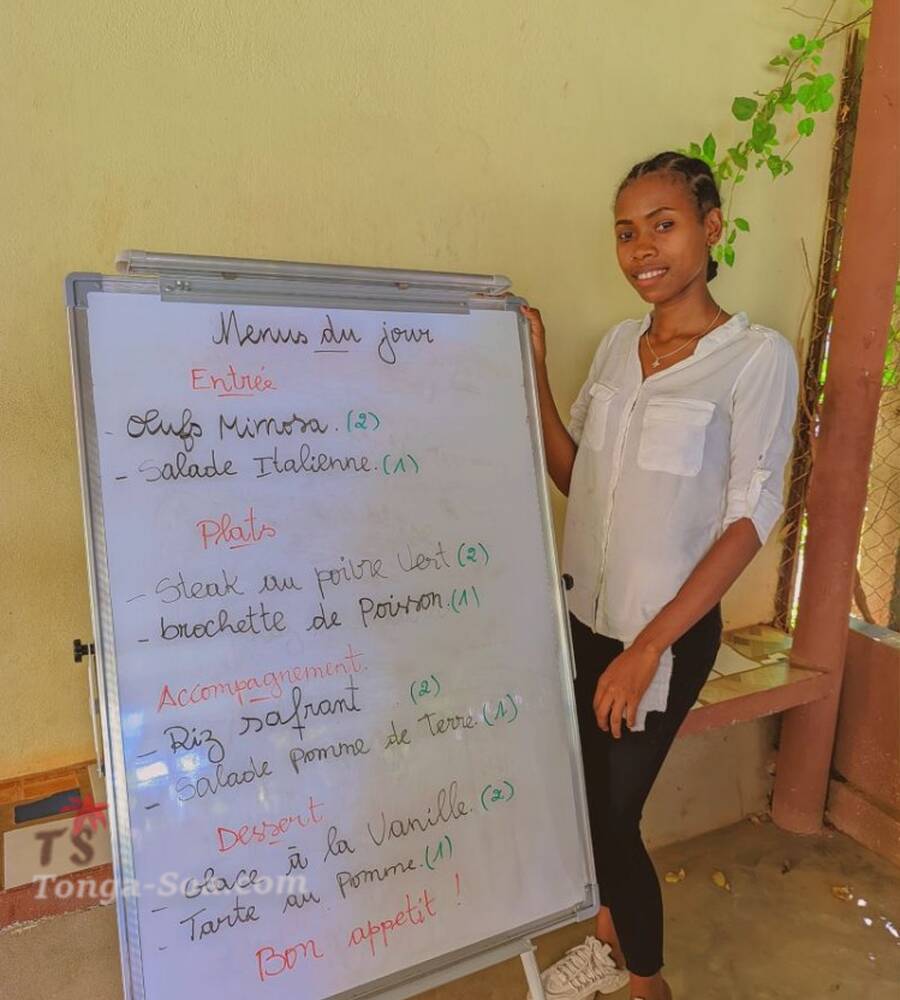 Menus du jour
Entrée
- Oeufs Mimosa. (2)
- Salade Italienne. (1)
Plats
- Steak au poivre Vert (2)
- brochette de Poisson. (1)
Accompagnement.
- Riz safrant (2)
- Salade Pomme de Terre. (1)
Dessert
- Glace à la Vanille. (2)
- Tarte au Pomme. (1)
Bon appetit !
TS
Tonga-Soa.com